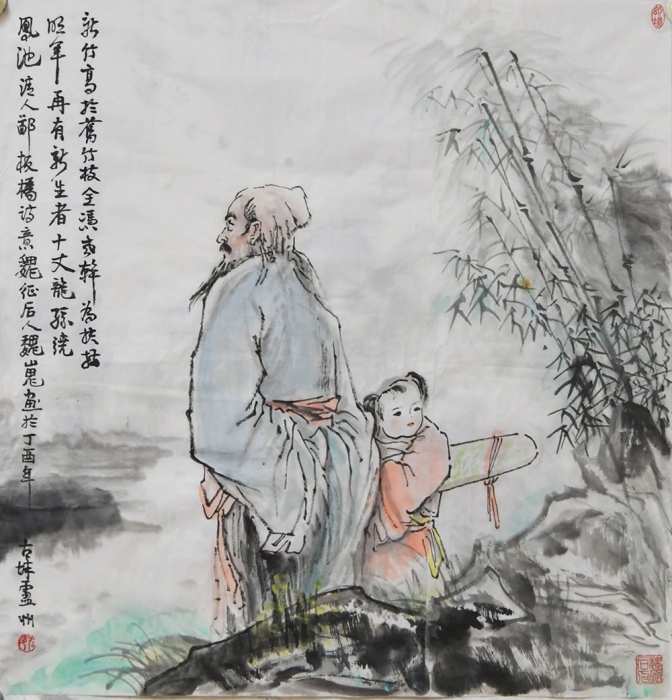 新竹高于舊竹枝全憑老幹為扶持
明年再有新生者十丈龍孫繞
鳳池清人鄭板橋詩意魏征后人魏嵬画於丁酉年
古埠盧州